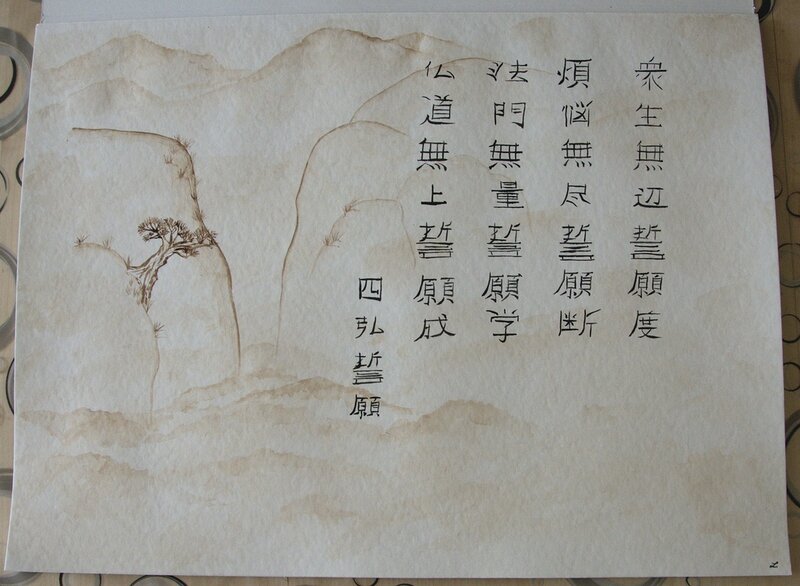 衆生無辺誓願度
煩悩無尽誓願断
法門無量誓願学
仏道無上誓願成
四弘誓願